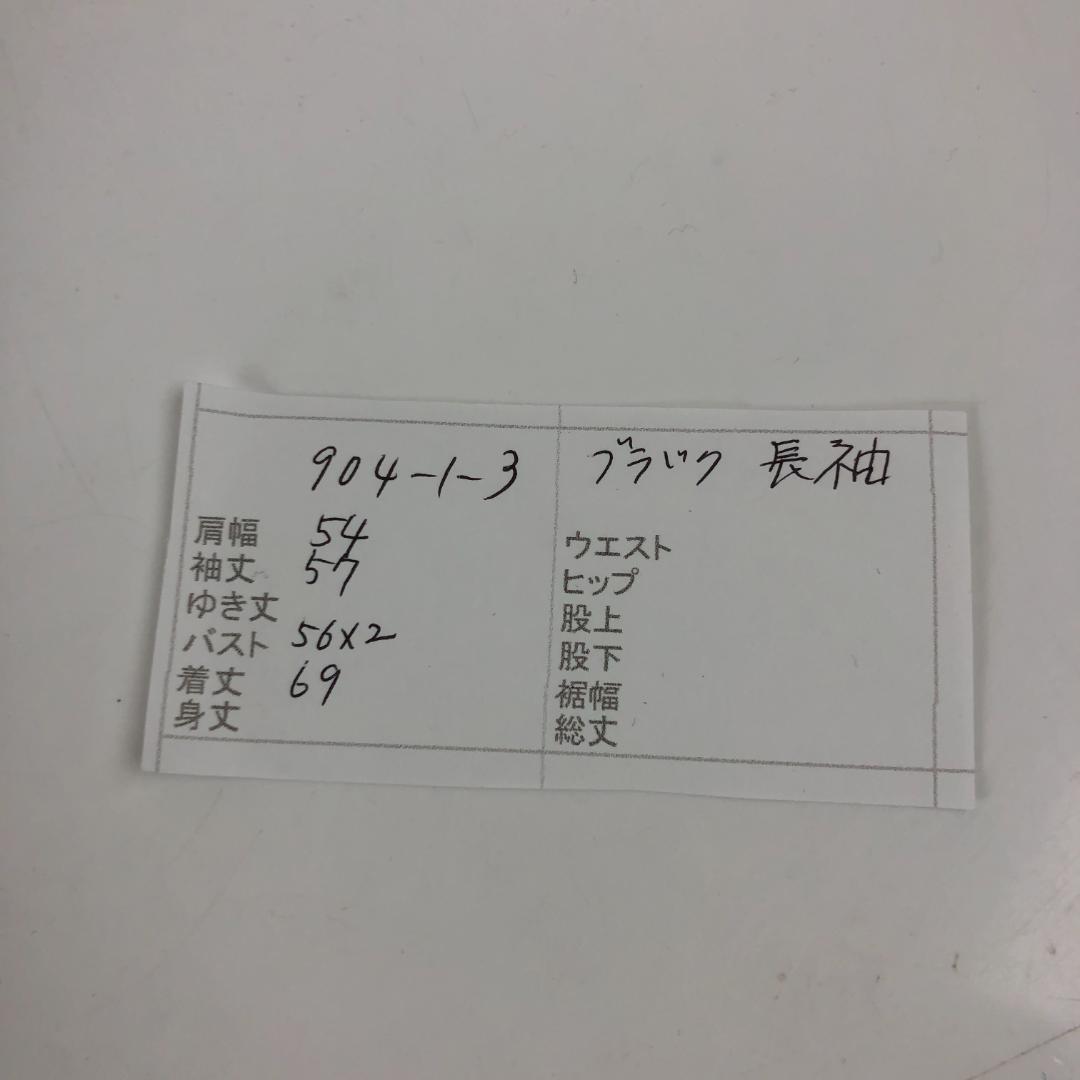 904-1-3
肩幅 54
袖丈 57
ゆき丈
バスト 56×2
着丈 69
身丈
ブラック 長袖
ウエスト
ヒップ
股上
股下
裾幅
総丈